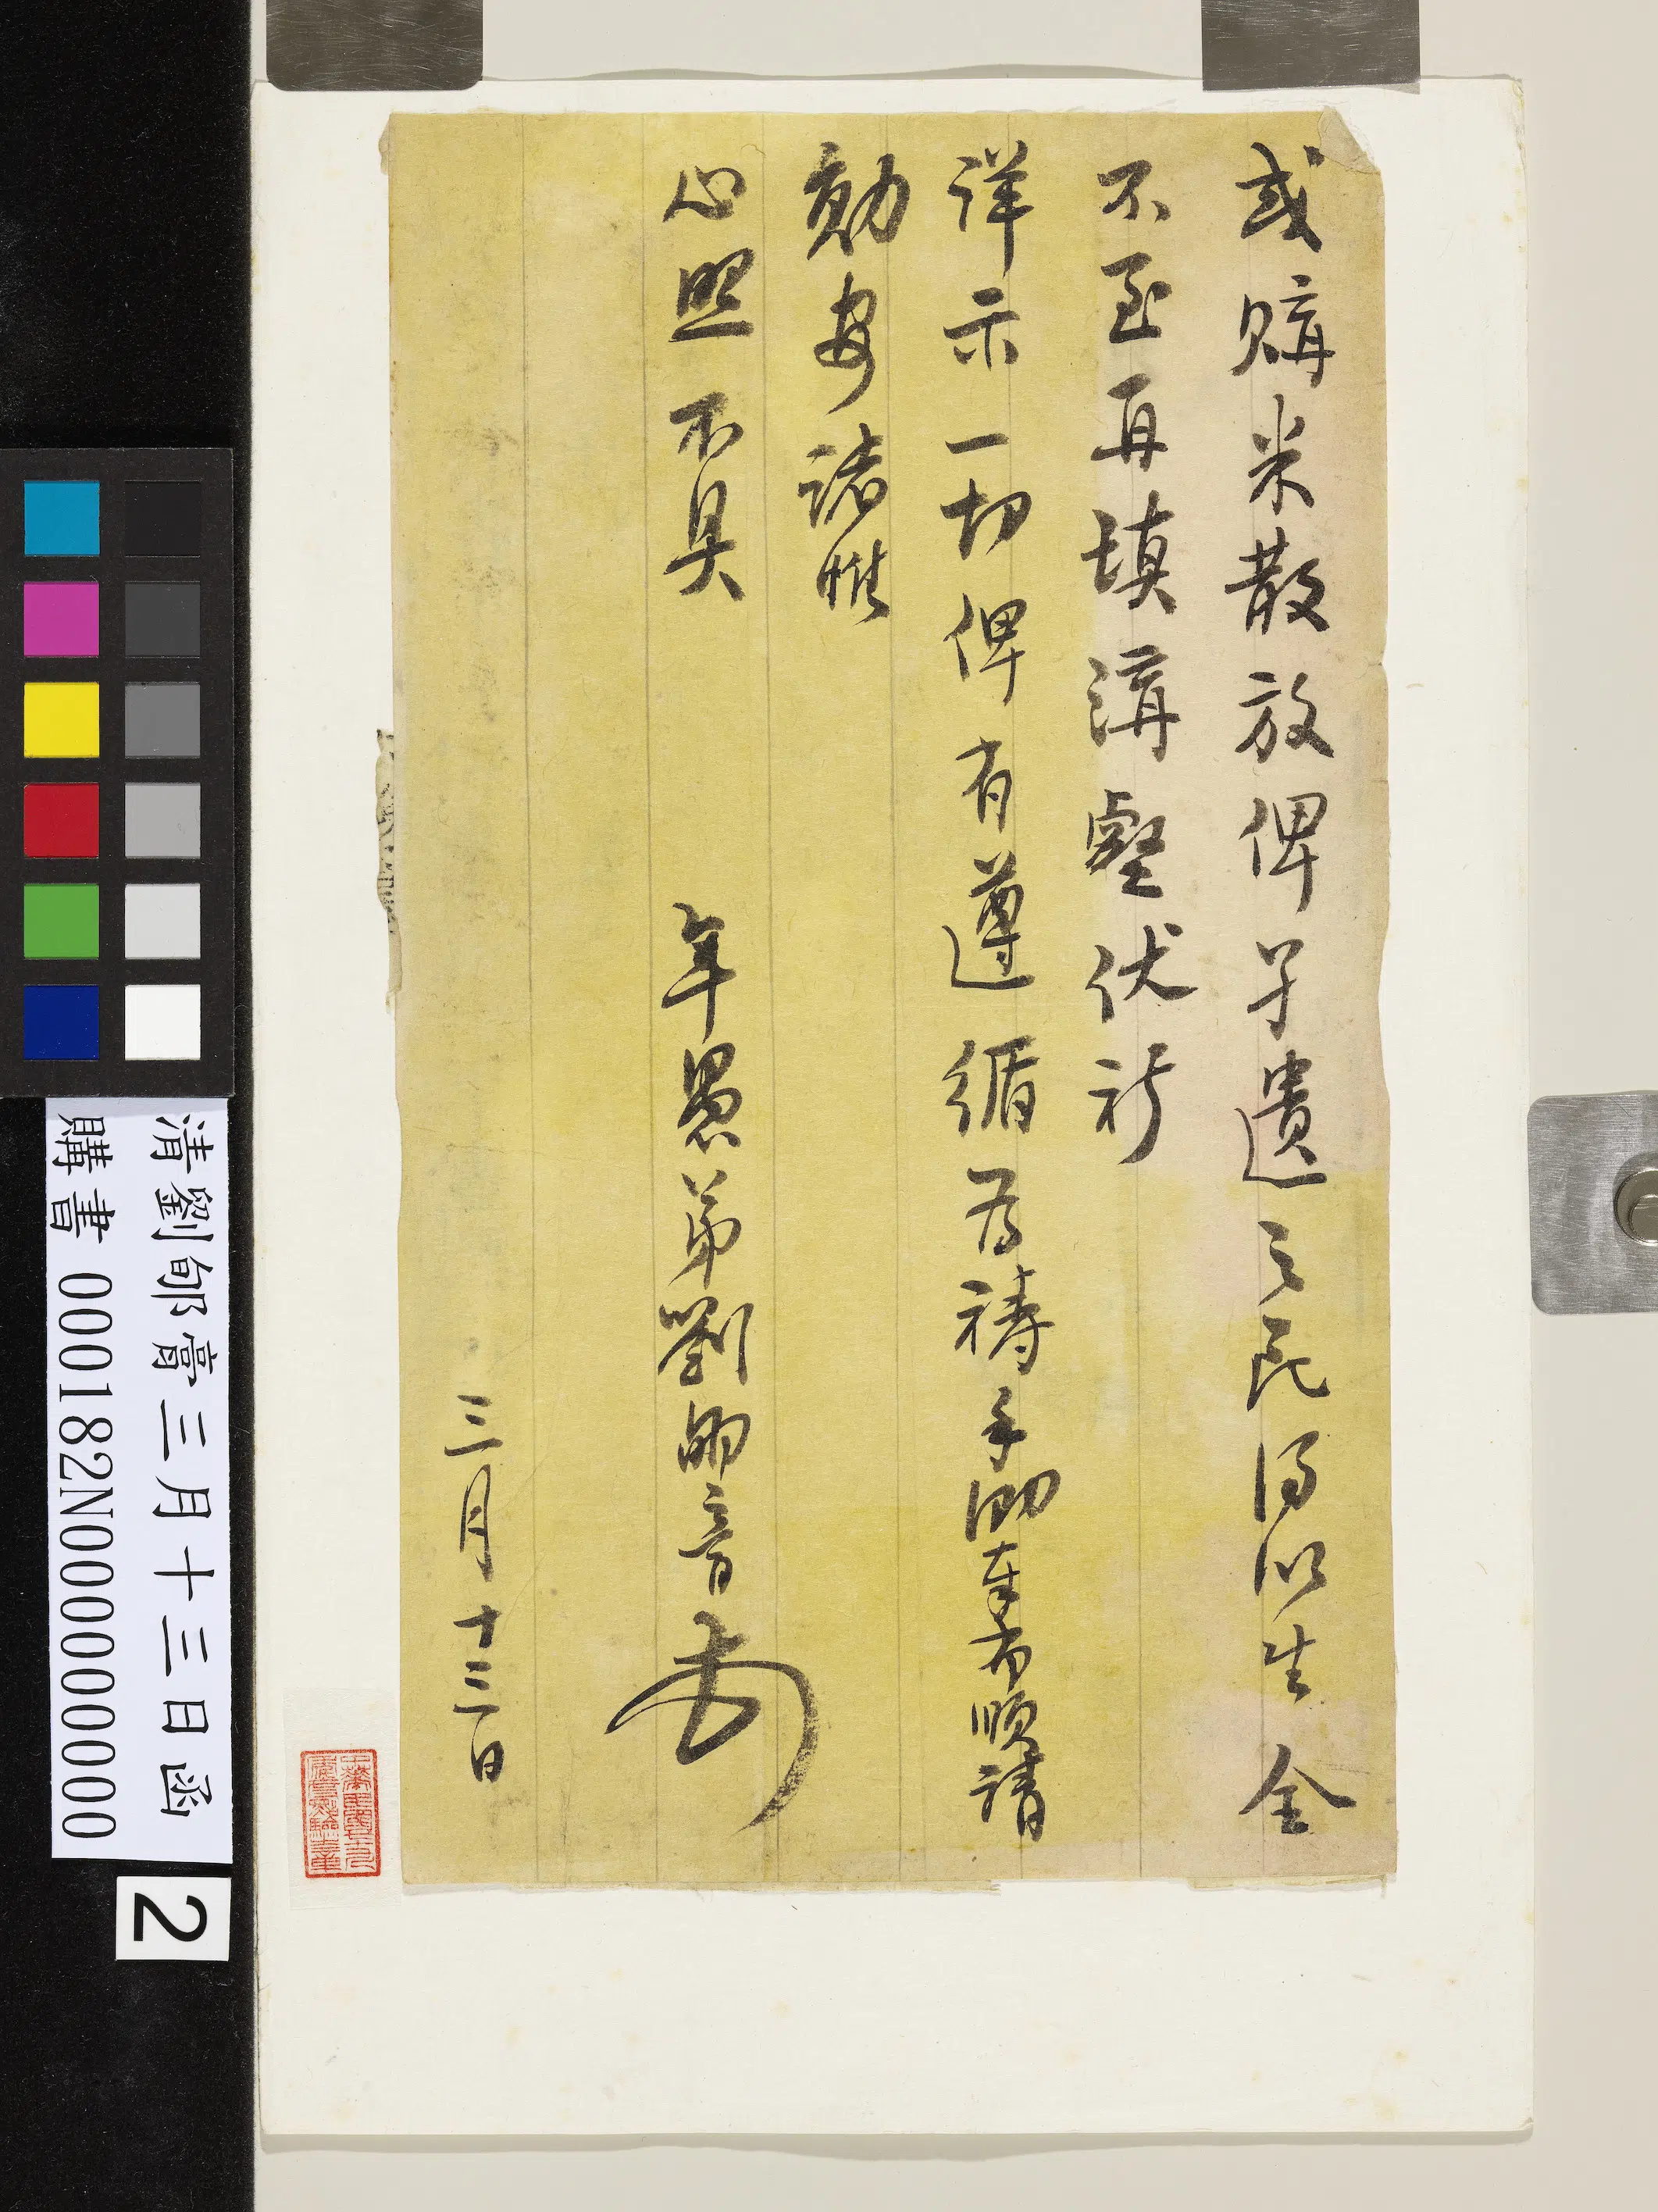 或購米散放俾孑遺之民得以生全
不至再填溝壑伏祈
詳示一切俾有遵循為禱手泐奉布順請
勛安諸惟
心照不具　年愚弟劉郇膏
三月十三日
清劉郇膏三月十三日函
購書 000182N000000000
2